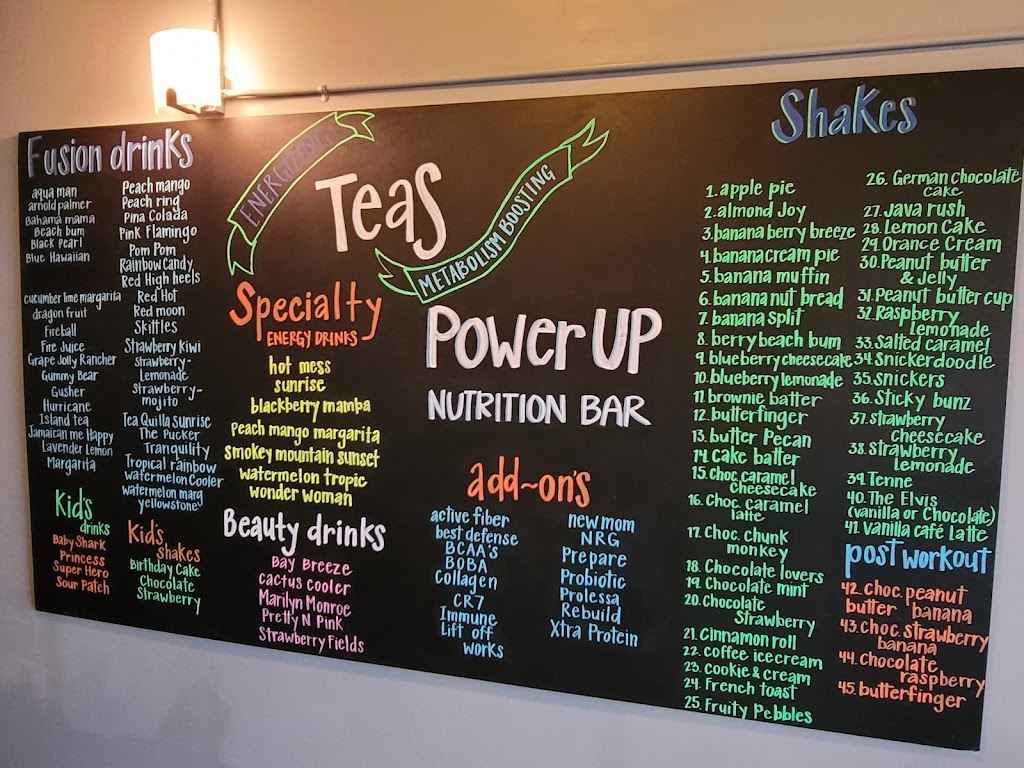 Fusion drinks
aqua man
arnold palmer
Bahama mama
Beach bum
Black Pearl
Blue Hawaiian
cucumber lime margarita
dragon fruit
Fireball
Fire Juice
Grape Jolly Rancher
Gummy Bear
Gusher
Hurricane
Island tea
Jamaican me Happy
Lavender Lemon
Margarita
Peach mango
Peach ring
Pina Colada
Pink Flamingo
Pom Pom
Rainbow Candy
Red High heels
Red Hot
Red moon
Skittles
Strawberry Kiwi
Strawberry-
Lemonade
Strawberry-
mojito
Tea Quilla Sunrise
The Pucker
Tranquility
Tropical rainbow
watermelon Cooler
watermelon marg
yellowstone
Kid's
drinks
Baby Shark
Princess
Super Hero
Sour Patch
Kid's
shakes
Birthday Cake
Chocolate
Strawberry
ENERGIZING
Teas
METABOLISM BOOSTING
Specialty
ENERGY DRINKS
hot mess
sunrise
blackberry mamba
Peach mango margarita
smokey mountain sunset
watermelon tropic
wonder woman
Beauty drinks
Bay Breeze
Cactus Cooler
Marilyn Monroe
Pretty N Pink
Strawberry Fields
Power UP
NUTRITION BAR
add-on's
active fiber
best defense
BCAA's
BOBA
Collagen
CR7
Immune
Lift off
works
new mom
NRG
Prepare
Probiotic
Prolessa
Rebuild
Xtra Protein
Shakes
1. apple pie
2. almond Joy
3. banana berry breeze
4. banana cream pie
5. banana muffin
6. banana nut bread
7. banana split
8. berry beach bum
9. blueberry cheesecake
10. blueberry lemonade
11. brownie batter
12. butterfinger
13. butter Pecan
14. cake batter
15. Choc caramel
cheesecake
16. Choc. caramel
latte
17. Choc. chunk
monkey
18. Chocolate lovers
19. Chocolate mint
20. Chocolate
Strawberry
21. Cinnamon roll
22. Coffee ice cream
23. Cookie & cream
24. French toast
25. Fruity Pebbles
26. German chocolate
cake
27. Java rush
28. Lemon Cake
29. Orange Cream
30. Peanut butter
& Jelly
31. Peanut butter cup
32. Raspberry
Lemonade
33. Salted caramel
34. Snickerdoodle
35. Snickers
36. Sticky bunz
37. Strawberry
Cheesecake
38. Strawberry
Lemonade
39. Tenne
40. The Elvis
(vanilla or Chocolate)
41. Vanilla café Latte
post workout
42. Choc. peanut
butter banana
43. Choc. strawberry
banana
44. Chocolate
raspberry
45. butterfinger